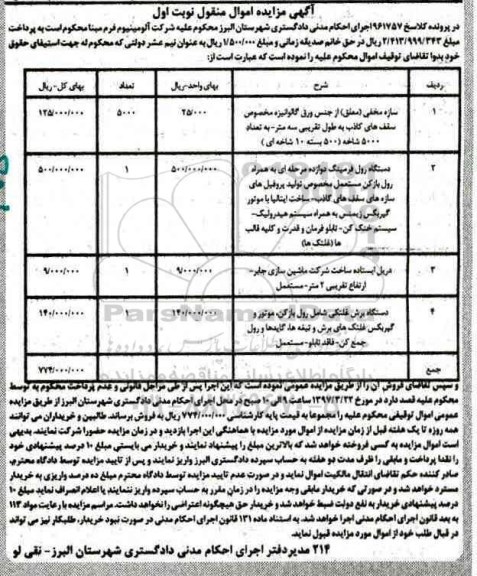 آگهی مزایده اموال منقول نوبت اول
در پرونده کلاسه ۹۶۱۷۵۷ اجرای احکام مدنی دادگستری شهرستان البرز محکوم علیه شرکت آلومینیوم فرم مبنا محکوم است به پرداخت
مبلغ ۲/۴۱۳/۹۹۹/۳۴۳ ریال در حق خانم صدیقه زمانی و مبلغ ۱/۵۰۰/۰۰۰ ریال به عنوان نیم عشر دولتی که محکوم له جهت استیفای حقوق
خود بدوا تقاضای توقیف اموال محکوم علیه را نموده است که عبارت است از:
ردیف شرح بهای واحد-ریال تعداد بهای کل-ریال
۱ سازه مخفی (معلق) از جنس ورق گالوانیزه مخصوص ۲۵/۰۰۰ ۵۰۰۰ ۱۲۵/۰۰۰/۰۰۰
سقف های کاذب به طول تقریبی سه متر- به تعداد
۵۰۰۰ شاخه (۵۰۰ بسته ۱۰ شاخه ای)
۲ دستگاه رول فرمینگ دوازده مرحله ای به همراه ۵۰۰/۰۰۰/۰۰۰ ۱ ۵۰۰/۰۰۰/۰۰۰
رول بازکن مستعمل مخصوص تولید پروفیل های
سازه های سقف های کاذب- ساخت ایتالیا با موتور
گیربکس زیمنس به همراه سیستم هیدرولیک-
سیستم خنک کن- تابلو فرمان و قدرت و کلیه قالب
ها (غلتک ها)
۳ دریل ایستاده ساخت شرکت ماشین سازی جابر- ۹/۰۰۰/۰۰۰ ۱ ۹/۰۰۰/۰۰۰
ارتفاع تقریبی ۲ متر-مستعمل
۴ دستگاه برش غلتکی شامل رول بازکن، موتور و ۱۴۰/۰۰۰/۰۰۰ ۱ ۱۴۰/۰۰۰/۰۰۰
گیربکس غلتک های برش و تیغه ها، گایدها و رول
جمع کن- فاقد تابلو-مستعمل
جمع ۷۷۴/۰۰۰/۰۰۰
و سپس تقاضای فروش آن را از طریق مزایده عمومی نموده است که این اجرا پس از طی مراحل قانونی و عدم پرداخت محکوم به توسط
محکوم علیه قصد دارد در مورخ ۱۳۹۷/۳/۲۲ ساعت ۹ الی ۱۰ صبح در محل اجرای احکام مدنی دادگستری شهرستان البرز از طریق مزایده
عمومی اموال توقیفی محکوم علیه را مجموعا به قیمت پایه کارشناسی ۷۷۴/۰۰۰/۰۰۰ ریال به فروش برساند. طالبین و خریداران می توانند
همه روزه تا یک هفته قبل از زمان مزایده از اموال مورد مزایده با هماهنگی این اجرا بازدید و در زمان مزایده حضورا شرکت نمایند. بدیهی
است اموال مزایده به کسی فروخته خواهد شد که بالاترین مبلغ را پیشنهاد نمایند و خریدار می بایستی مبلغ ۱۰ درصد پیشنهادی خود
را نقدا پرداخت و مابقی را ظرف مدت دو هفته به حساب سپرده دادگستری البرز واریز نمایند و پس از تایید مزایده توسط دادگاه محترم
صادر کننده حکم تقاضای انتقال مالکیت اموال نماید و در صورت عدم تایید مزایده توسط دادگاه محترم مبلغ ده درصد واریزی به خریدار
مسترد خواهد شد و در صورتی که خریدار مابقی وجه مزایده را در زمان مقرر به حساب سپرده واریز ننمایند یا اعلام انصراف نماید مبلغ ۱۰
درصد پیشنهادی خریدار به نفع دولت ضبط خواهد شد و خریدار حق هیچگونه اعتراضی را نخواهد داشت. مراسم مزایده با رعایت مواد ۱۱۳
به بعد قانون اجرای احکام مدنی اجرا خواهد شد. به استناد ماده ۱۳۱ قانون اجرای احکام مدنی در صورت نبود خریدار، طلبکار نیز می تواند
در قبال طلب خود از اموال مورد مزایده قبول نماید.
۲۱۴ مدیر دفتر اجرای احکام مدنی دادگستری شهرستان البرز- نقی لو